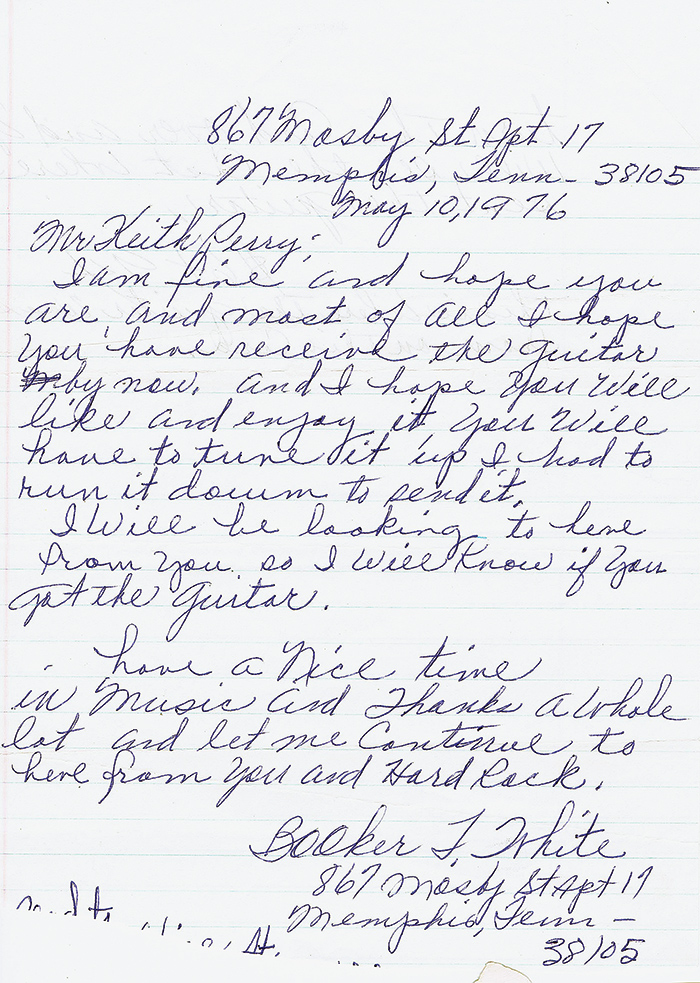 867 Mosby St. Apt 17
Memphis, Tenn - 38105
May 10, 1976
Mr Keith Perry;
I am fine and hope you
are, and most of all I hope
you have receive the guitar
by now. and I hope you will
like and enjoy it, you will
have to tune it up I had to
run it down to send it.
I will be looking to here
from you so I will know if you
got the guitar.
have a Nice time
in Music and Thanks a whole
lot and let me Continue to
here from you and Hard Rock.
Booker T. White
867 Mosby St Apt 17
Memphis, Tenn -
38105